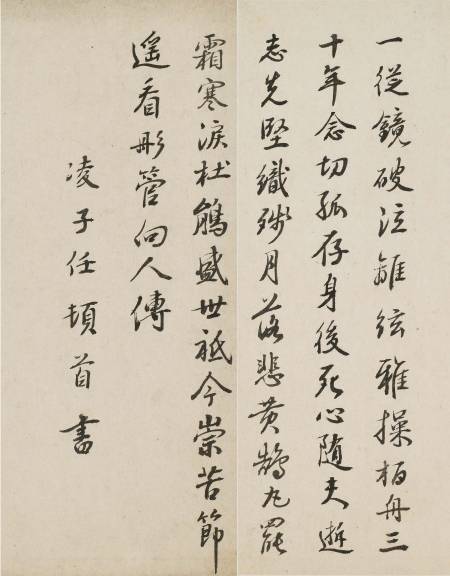 一從鏡破泣離絃雅操栢舟三
十年念切孤存身後死心隨夫逝
志先堅織殘月落悲黄鵠丸罷
霜寒淚杜鵑盛世祗今崇苦節
遥看彤管向人傳
凌子任頓首書